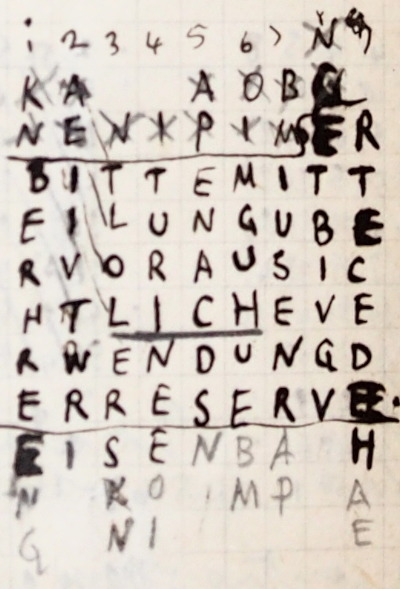 1 2 3 4 5 6 7
K A A O B
N E N I P I M S E R
B I T T E M I T T
E I L U N G U B E
R V O R A U S I C
H T L I C H E V E
R W E N D U N G D
E R R E S E R V E.
E I S E N B A H
N K O M P A
G N I E